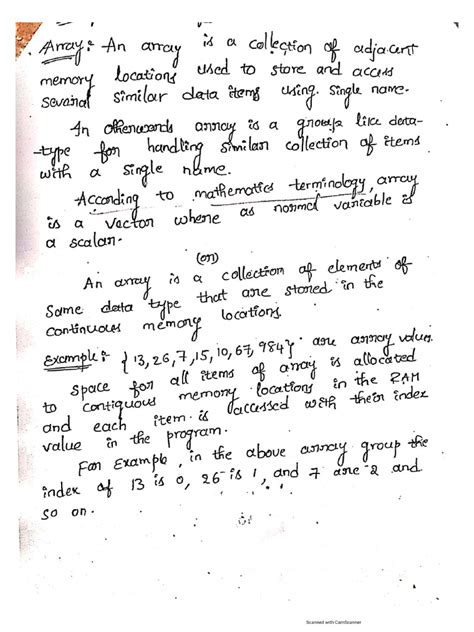 Array:- An array is a collection of adjacent
memory locations used to store and access
several similar data items using single name.
In otherwords array is a group like data-
type for handling similar collection of items
with a single name.
According to mathematics terminology, array
is a vector where as normal variable is
a scalar.
(or)
An array is a collection of elements of
same data type that are stored in the
continuous memory locations.
Example:- {13, 26, 7, 15, 10, 67, 984} are array values
space for all items of array is allocated
to contiguous memory locations in the RAM
and each item is accessed with their index
value in the program.
For Example, in the above array group the
index of 13 is 0, 26 is 1, and 7 are 2 and
so on.
Scanned with CamScanner